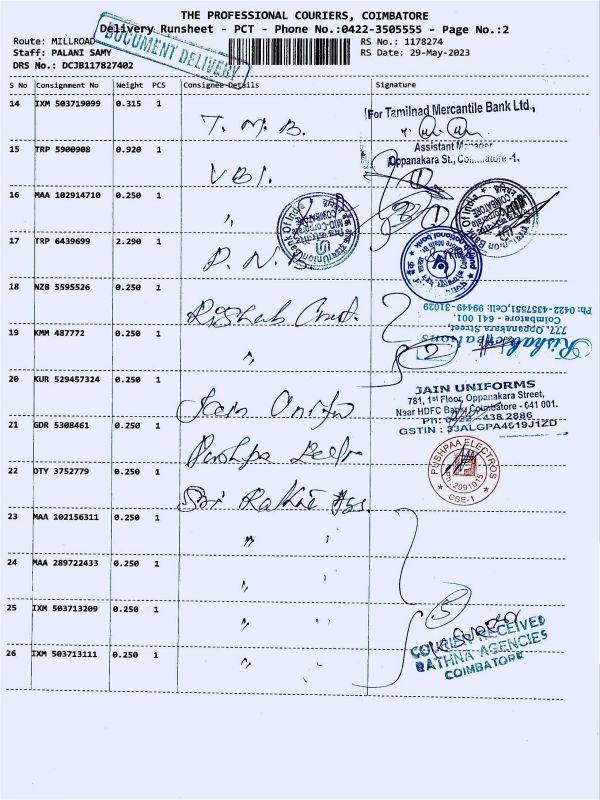 THE PROFESSIONAL COURIERS, COIMBATORE
Delivery Runsheet - PCT - Phone No.:0422-3505555 - Page No.:2
Route: MILLROAD
RS No.: 1178274
Staff: PALANI SAMY
RS Date: 29-May-2023
DRS No.: DCJB117827402
DOCUMENT DELIVERY
S No Consignment No Weight PCS Consignee Details Signature
14 IXM 503719099 0.315 1 T. M. B.
For Tamilnad Mercantile Bank Ltd.,
Assistant Manager
Oppanakara St., Coimbatore -1.
15 TRP 5900908 0.920 1 UBI.
16 MAA 102914710 0.250 1 〃
17 TRP 6439699 2.290 1 P. N. B
18 NZB 5595526 0.250 1 Rishab
Rishab
777, Oppanakara Street,
Coimbatore - 641 001.
Ph: 0422-4357551,Cell: 99449-31029
19 KMM 487772 0.250 1 〃
20 KUR 529457324 0.250 1 Jain
JAIN UNIFORMS
781, 1st Floor, Oppanakara Street,
Near HDFC Bank, Coimbatore - 641 001.
GSTIN : 33ALGPA4619J1ZD
21 GDR 5308461 0.250 1 Pushpa
PUSHPAA ELECTROS
Ph: 2991015
CBE-1
22 DTY 3752779 0.250 1 Sri
23 MAA 102156311 0.250 1 〃
24 MAA 289722433 0.250 1 〃
25 IXM 503713209 0.250 1 〃
26 IXM 503713111 0.250 1 〃
5
COURIER RECEIVED
RATHNA AGENCIES
COIMBATORE